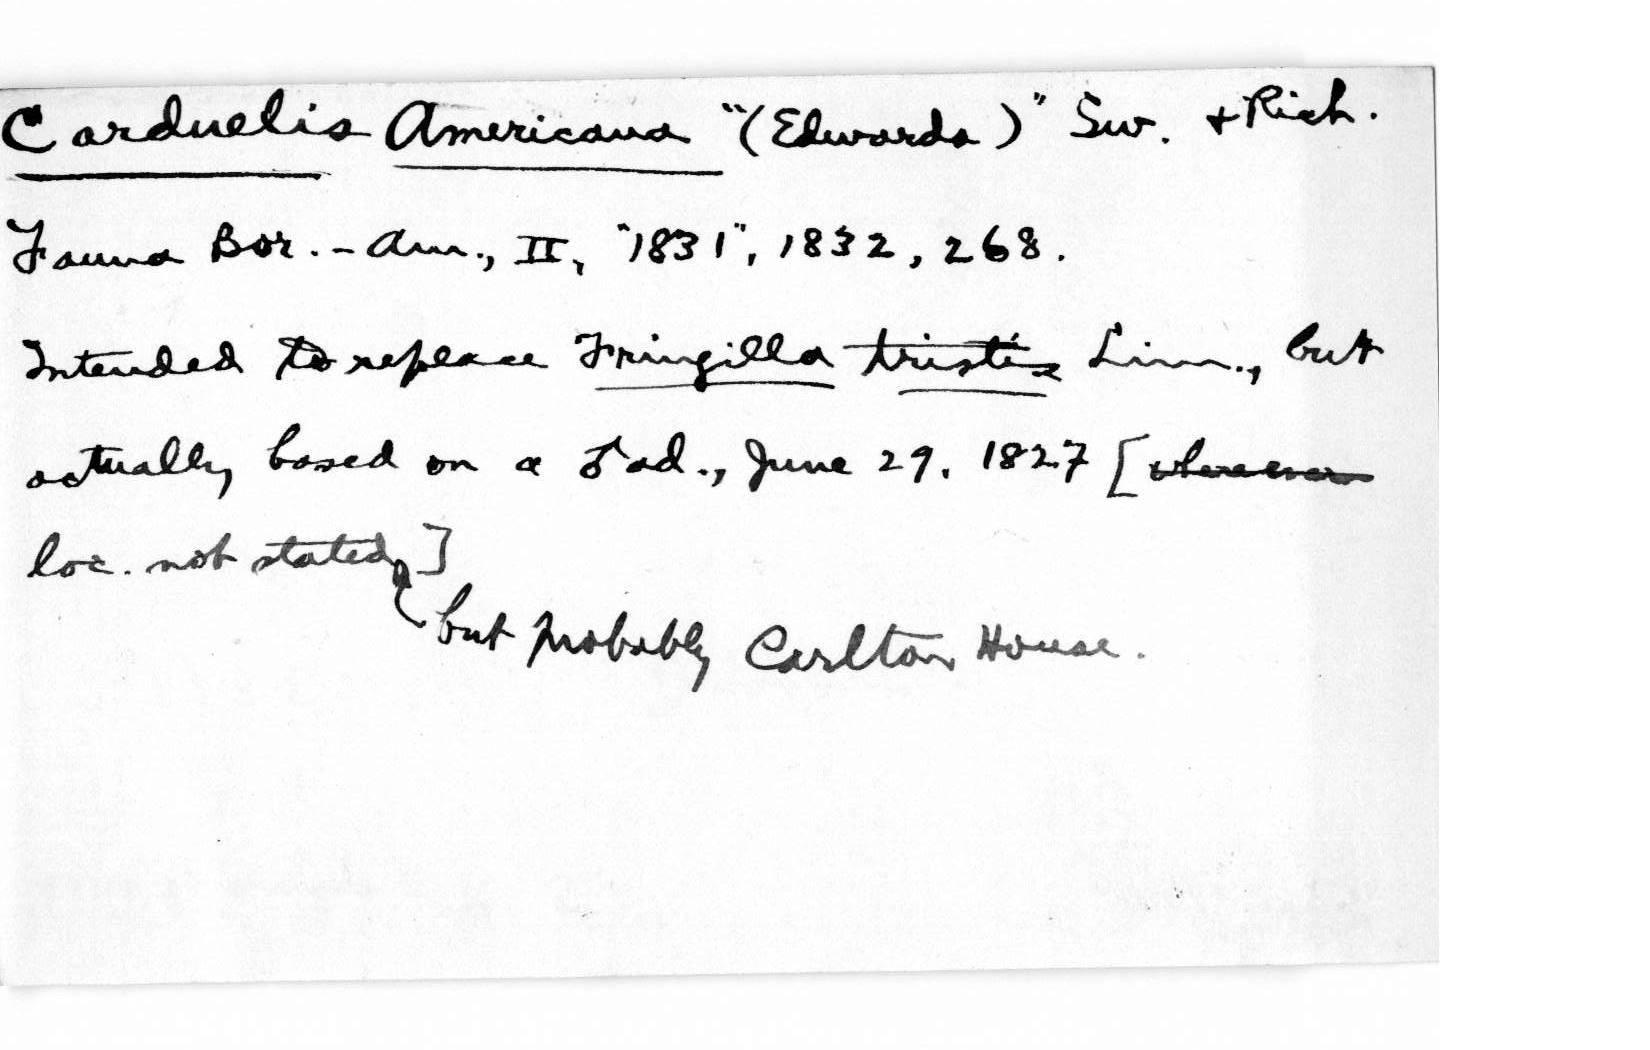 Carduelis Americana "(Edwards)" Sw. + Rich.
Fauna Bor.-Am., II, "1831", 1832, 268.
Intended to replace Fringilla tristis Linn., but
actually based on a ♂ ad., June 29, 1827 [
loc. not stated]
but probably Carlton House.